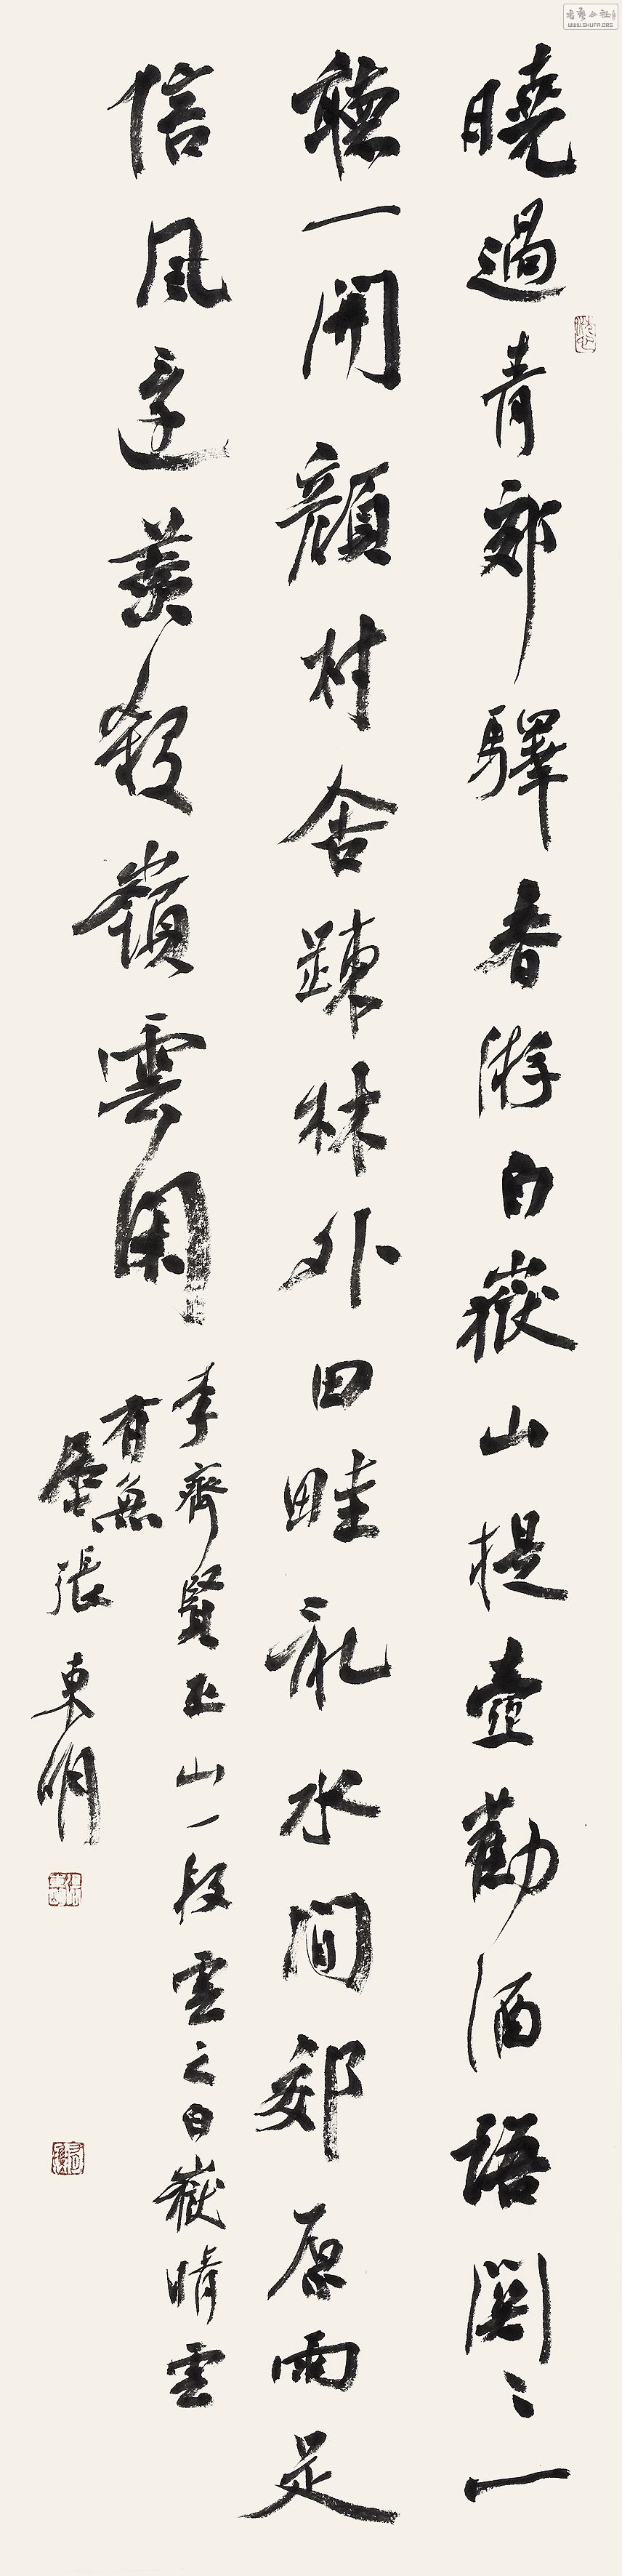 曉過青郊驛春游白嶽山提壺勸酒語關〻一
聽一開顏村舍踈林外田畦亂水間郊原雨足
信風還羨殺嶺雲閑
李齊賢巫山一段雲之白嶽晴雲
有無
張東明
WWW.SHUFA.ORG